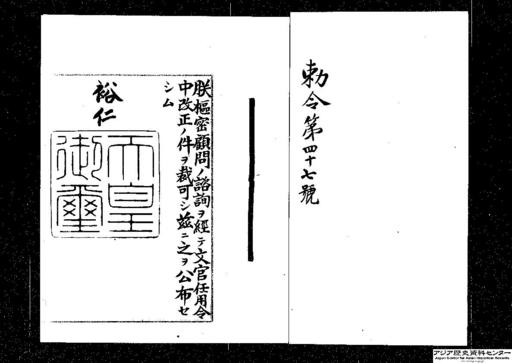 勅令第四十七號
朕樞密顧問ノ諮詢ヲ經テ文官任用令
中改正ノ件ヲ裁可シ茲ニ之ヲ公布セ
シム
裕仁
天皇
御璽
アジア歴史資料センター
Japan Center for Asian Historical Records